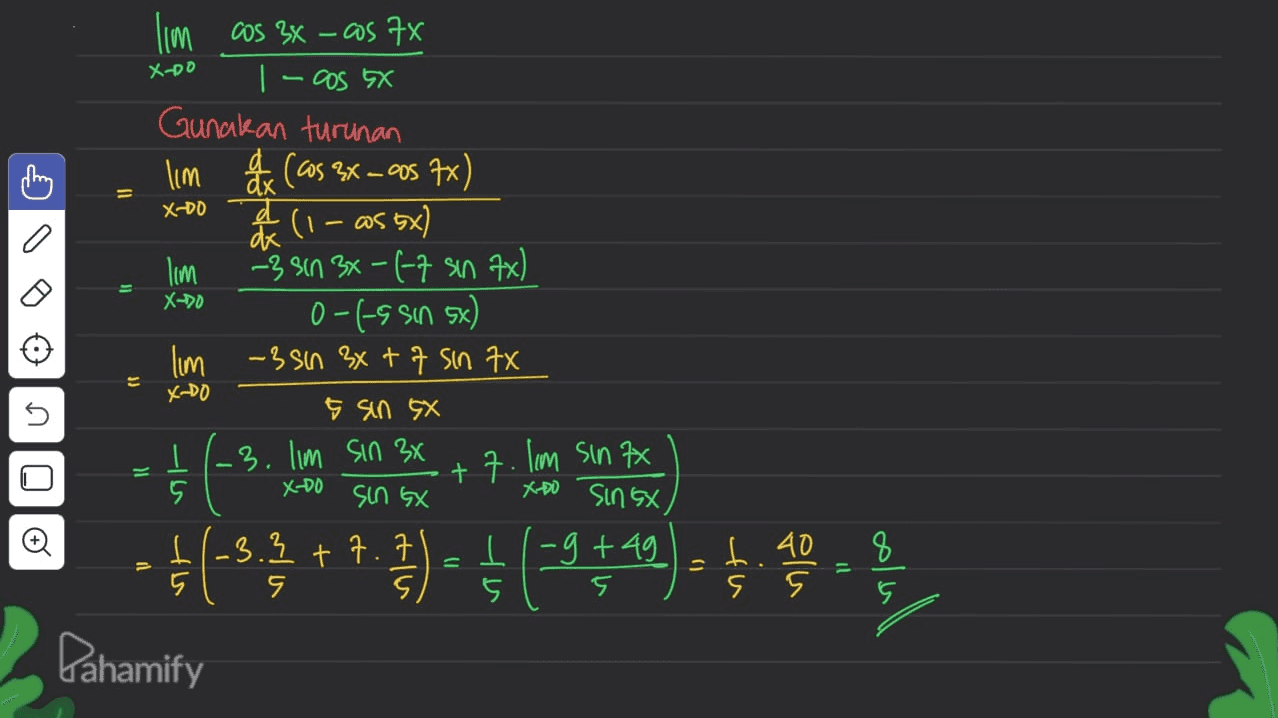 lim cos 3x - cos 7x
x→0 1 - cos 5x
Gunakan turunan
= lim d/dx (cos 3x - cos 7x)
x→0 d/dx (1 - cos 5x)
= lim -3 sin 3x - (-7 sin 7x)
x→0 0 - (-5 sin 5x)
= lim -3 sin 3x + 7 sin 7x
x→0 5 sin 5x
= 1/5 (-3. lim x→0 sin 3x / sin 5x + 7. lim x→0 sin 7x / sin 5x)
= 1/5 (-3. 3/5 + 7. 7/5) = 1/5 (-9 + 49 / 5) = 1/5 . 40/5 = 8/5
Pahamify